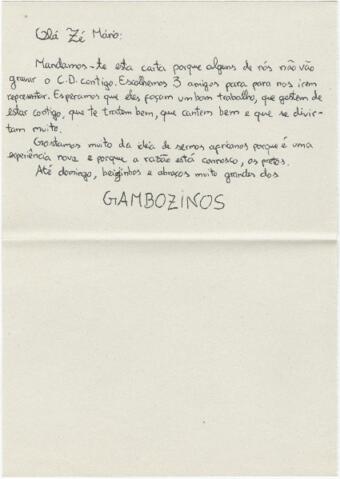 Olá Zé Mário:
Mandamos-te esta carta porque alguns de nós não vão
gravar o C.D. contigo. Escolhemos 3 amigos para para nos irem
representar. Esperamos que eles façam um bom trabalho, que gostem de
estar contigo, que te tratem bem, que cantem bem e que se divir-
tam muito.
Gostamos muito da ideia de sermos africanos porque é uma
experiência nova e porque a razão está connosco, os pretos.
Até domingo, beijinhos e abraços muito grandes dos
GAMBOZINOS